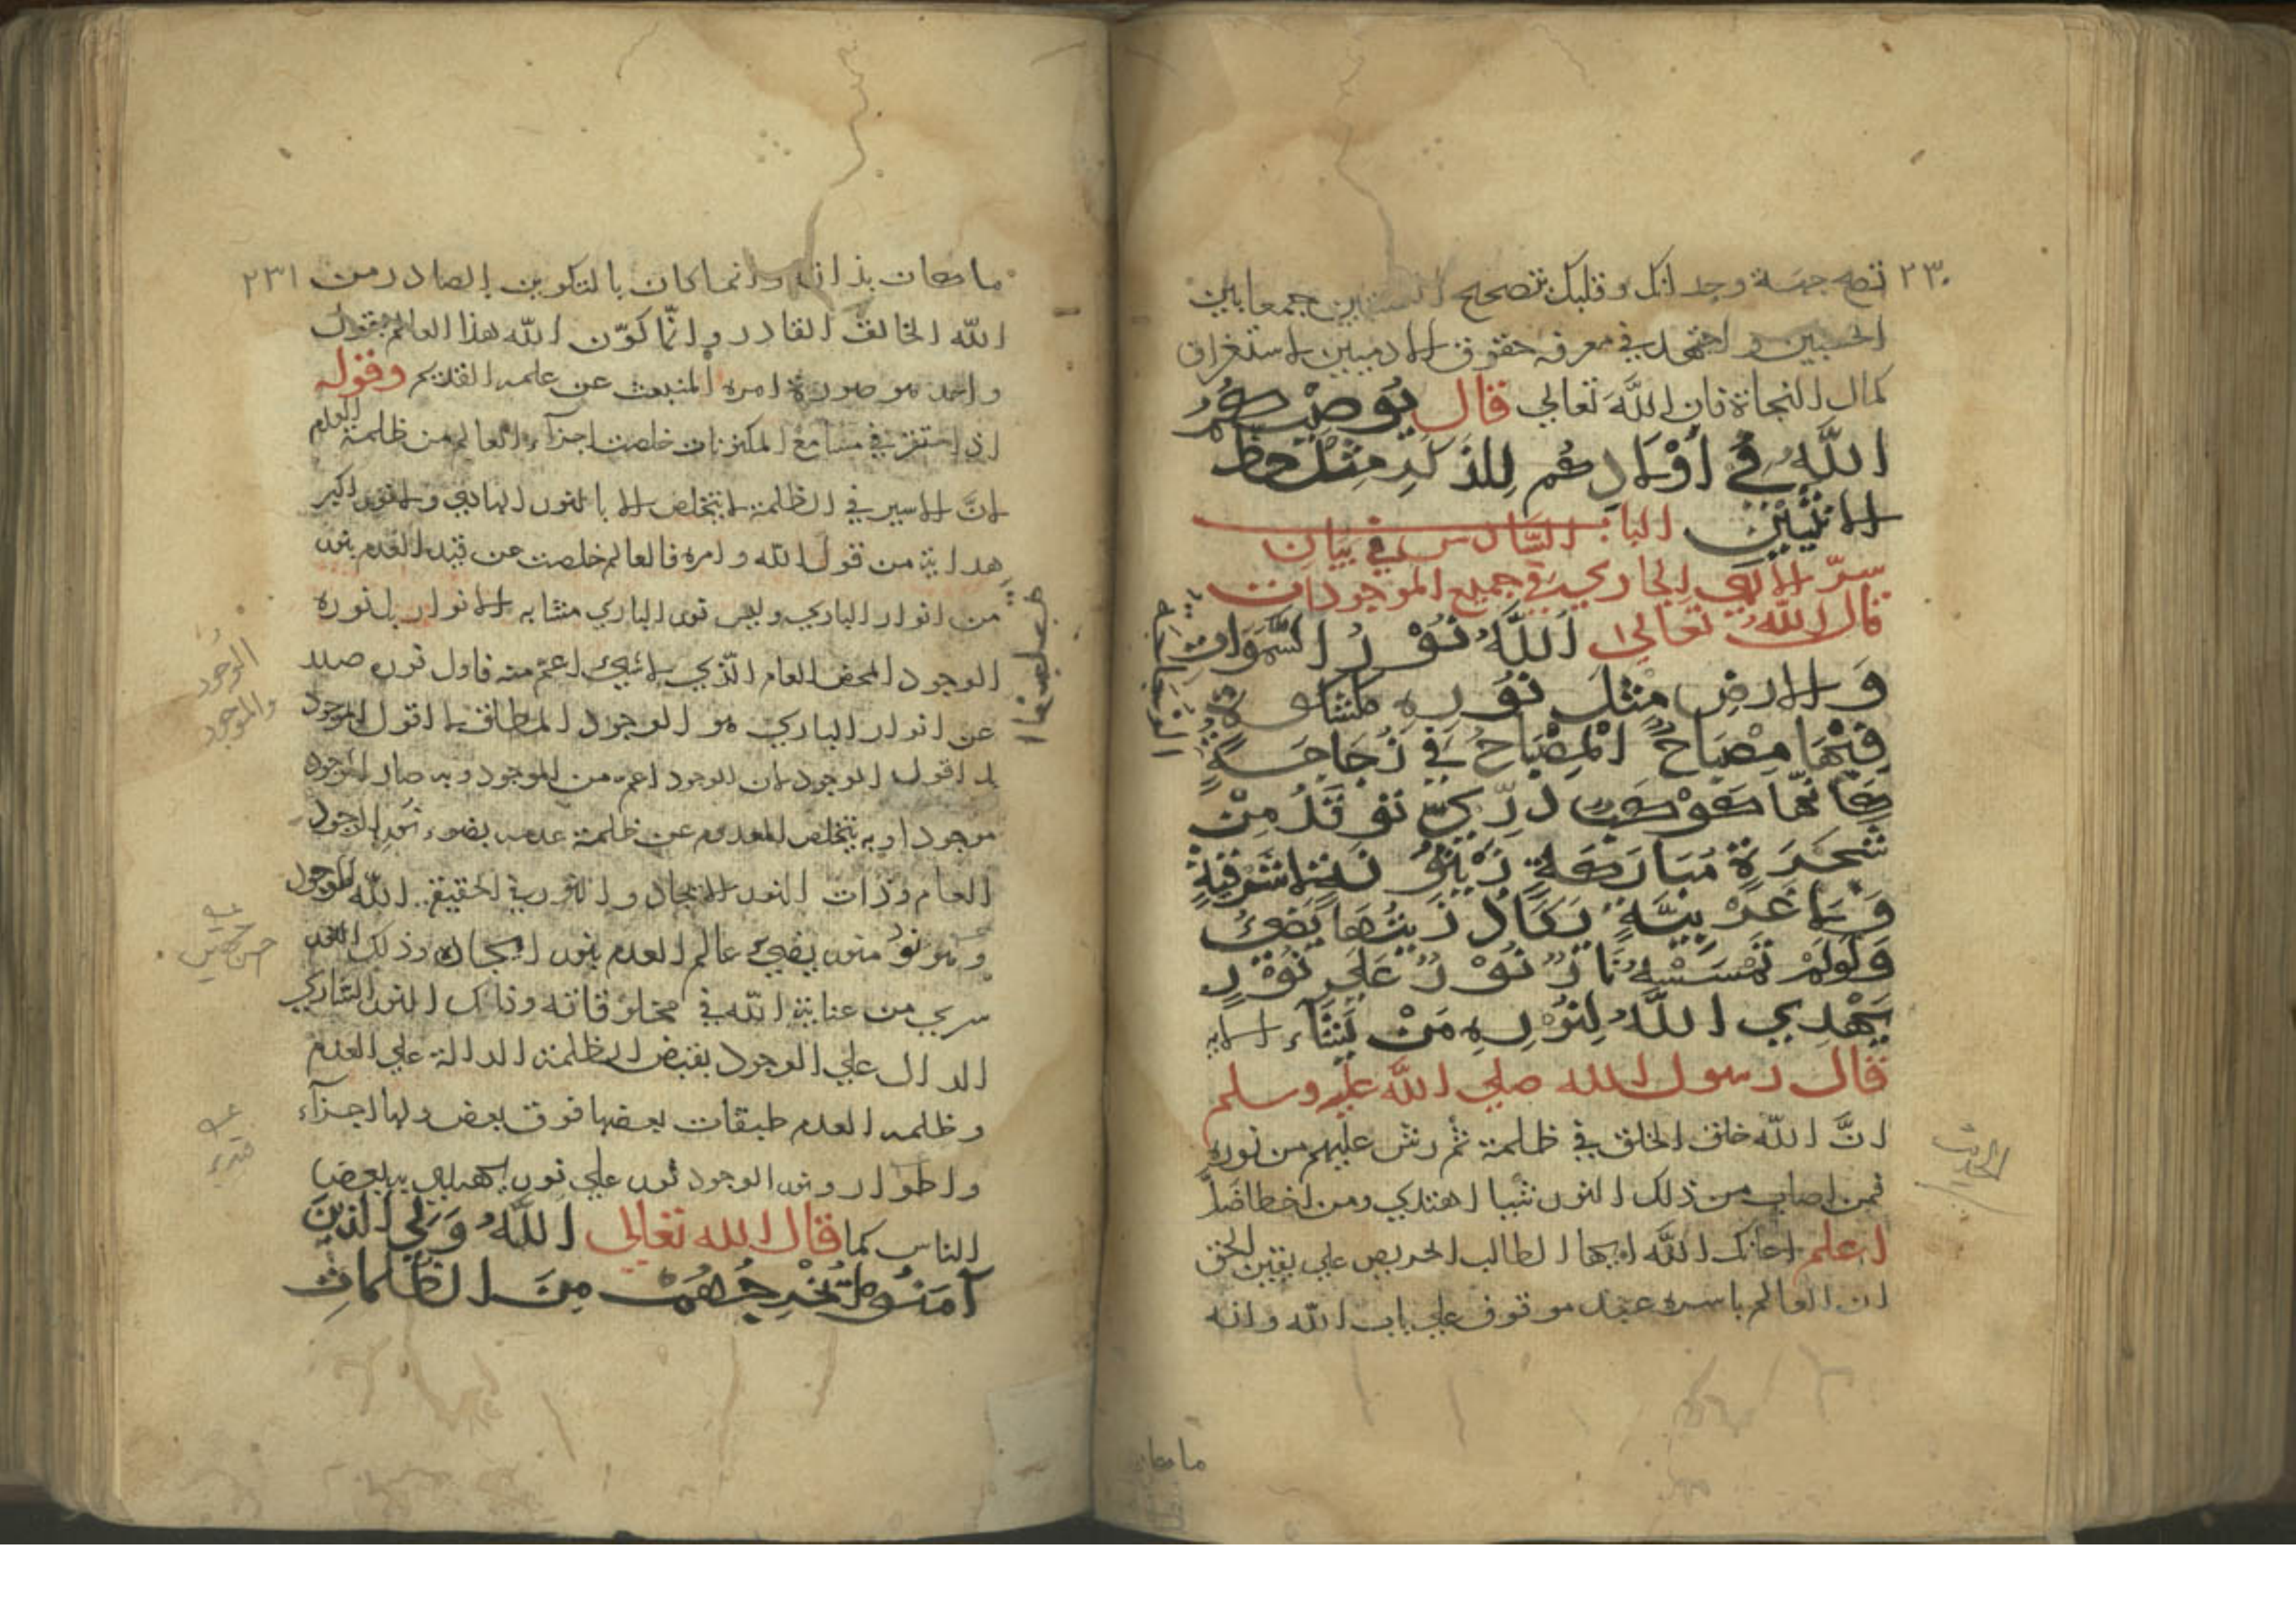 ٢٣٠
تصح جهة وجدانك وقلبك بتصحيح جمعا بين
الحسبين واجتهد في معرفة حقوق الادميين لاستغراق
كمال النجاة فان الله تعالي قال يُوصِيْكُمُ
اللَّهُ فِي أَوْلَادِكُم لِلذَّكَرِ مِثْلُ حَظِّ
الانثيين الباب السادس في بيان
سرّ الالهي الجاري في جميع الموجودات
قال الله تعالي اَللَّهُ نُوْرُ السَّمَوَات
وَالارضِ مَثَلُ نُوْرِهِ كمشكوة
فِيْهَا مِصْبَاحٌ الْمِصْبَاحُ فِي زُجَاجَةٍ
كَانَّهَا كَوْكَبٌ دُرِّيٌّ تُوقَدُ مِنْ
شَجَرَةٍ مُبَارَكَةٍ زَيْتُونَةٍ لَا شَرْقِيَّةٍ
وَلَا غَرْبِيَّةٍ يَكَادُ زَيْتُهَا يُضِيُ
وَلَوْلَمْ تَمْسَسْهُ نَارٌ نُوْرٌ عَلَي نُوْرٍ
يَهْدِي اللَّهُ لِنُوْرِهِ مَنْ يَشَآء الايه
قال رسول الله صلي الله عليه وسلم
انَّ الله خلق الخلق في ظلمة ثم رش عليهم من نوره
فمن اصاب من ذلك النور شيا اهتدي ومن اخطا ضلّ
اعلم اعانك الله ايها الطالب الحريص علي يقين الحق
ان العالم باسره عبد موقوف علي باب الله وانه
الحديث
ما كان
٢٣١
ما كان بذاته وانما كان بالتكوين الصادر من
الله الخالق القادر وانّما كوّن الله هذا العالم بقول
واحد هو صورة امره المنبعث عن علمه القديم وقوله
اذ استقر في مسامع المكنونات خلصت اجزآء العالم من ظلمة العدم
لانَّ الاسير في الظلمة لا يتخلص الا بالنور الهادي ولا نور اكبر
هداية من قول الله وامره فالعالم خلصت عن قيد العدم بنور
من انوار الباري وليس نور الباري مشابه الانوار بل نوره
الوجود المحض العام الّذي لا شيء اعمّ منه فاول نور صدر
عن انوار الباري هو الوجود المطلق لا اقول الموجود
بل اقول الوجود لان الوجود اعم من الموجود وبه صار الموجود
موجودا وبه يتخلص المعدوم عن ظلمة عدمه بضوء نور الوجود
العام وذات النور الايجاد والنور في الحقيقة الله الموجد
وهو نور منور يضيء عالم العدم بنور ايجاده وذلك النور
سري من عناية الله في مخلوقاته وذلك النور السّاري
الدال علي الوجود بقبض الظلمة الدالة علي العدم
وظلمة العدم طبقات بعضها فوق بعض ولها اجزآء
واطوار ونور الوجود نور علي نور يهدي به بعض
الناس كما قال الله تعالي اللَّهُ وَلِيُّ الَّذِينَ
آمَنُوا يُخْرِجُهُمْ مِنَ الظُّلُمَاتِ
الوجود
والموجود